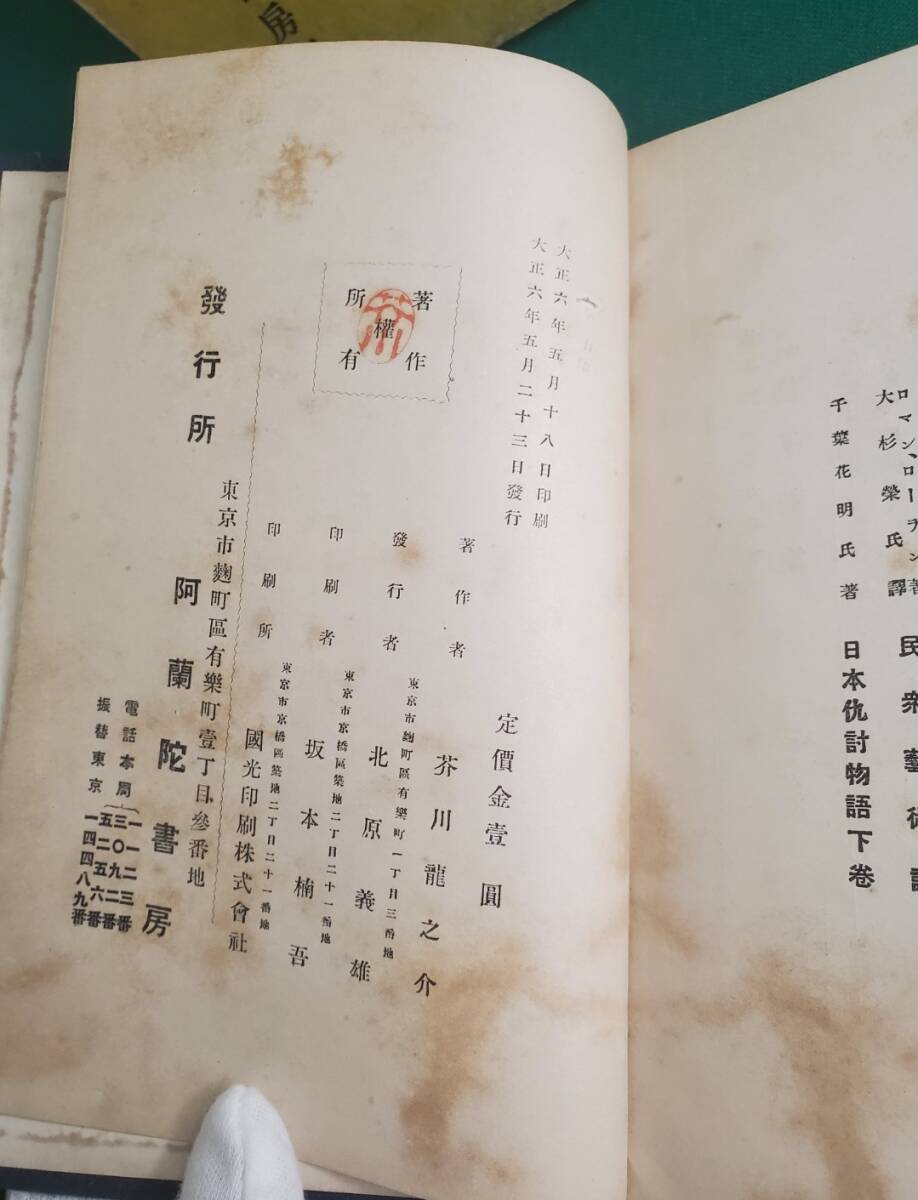 房
ロマン、ローラン著
大杉榮氏譯
民衆藝術
千葉花明氏著
日本仇討物語下卷
大正六年五月十八日印刷
大正六年五月二十三日發行
著作
權
所有
芥川
定價金壹圓
著作者
芥川龍之介
發行者
東京市麴町區有樂町一丁目三番地
北原義雄
印刷者
東京市京橋區築地二丁目二十一番地
坂本楠吾
印刷所
東京市京橋區築地二丁目二十一番地
國光印刷株式會社
發行所
東京市麴町區有樂町壹丁目參番地
阿蘭陀書房
電話本局
振替東京